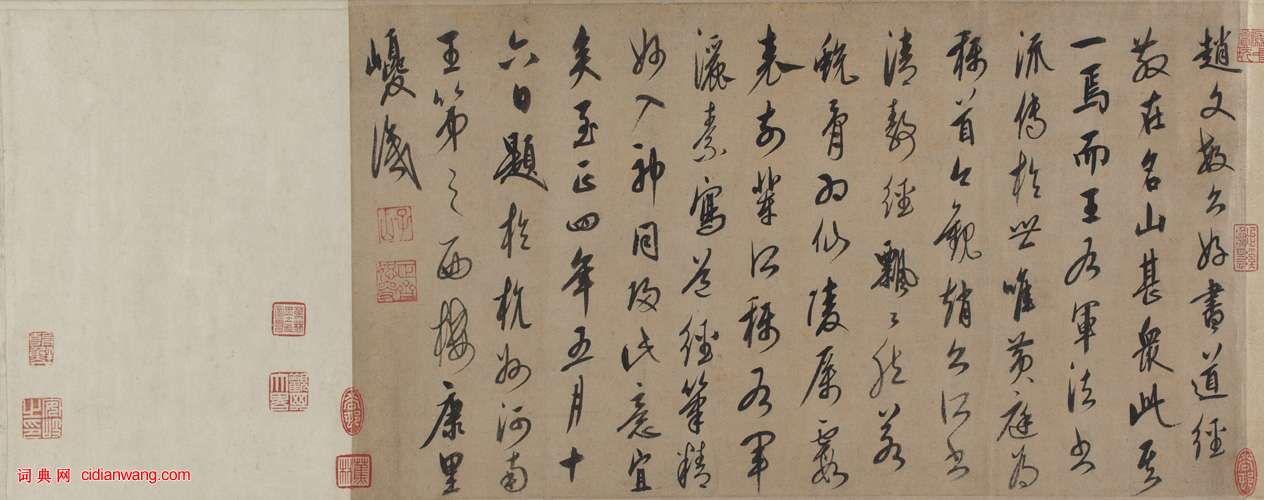 趙文敏公好書道經
散在名山甚衆此其
一焉而王右軍法書
流傳於世唯黃庭為
稱首今觀趙公所書
清静經飄〻然若
蛻骨為仙陵厲霞
表前輩所稱右軍
灑素寫道經筆精
妙入神同得此意宜
矣至正四年五月十
六日題於杭州河南
王第之西樓康里
巎識
子山
蕉林
词典网 cidianwang.com